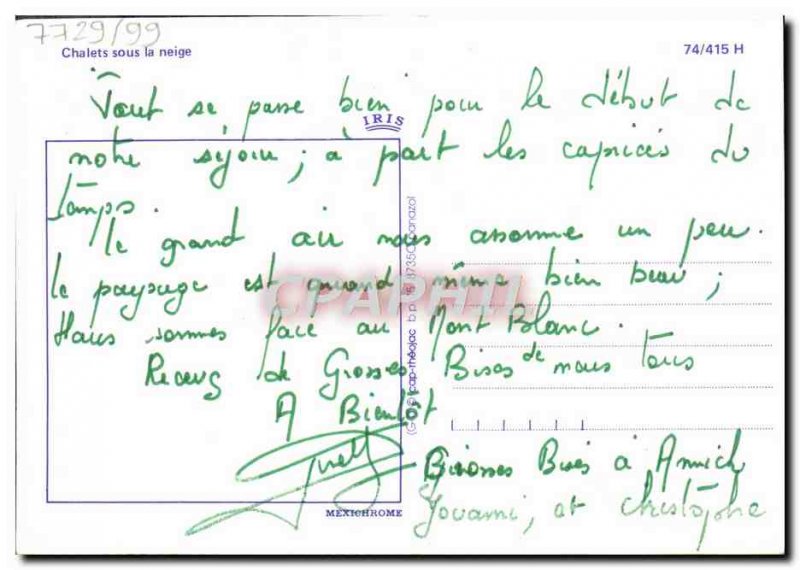 7729/99
Chalets sous la neige
74/415 H
Tout se passe bien pour le début de
IRIS
notre séjour ; à part les caprices du
Temps.
le grand air nous assomme un peu.
le paysage est quand même bien beau ;
CPAPHIL
Nous sommes face au Mont Blanc.
Recevez de Grosses Bises de nous Tous
A Bientôt
Grosses Bises à Annick
MEXICHROME
et Christophe
cap-théojac b.p.